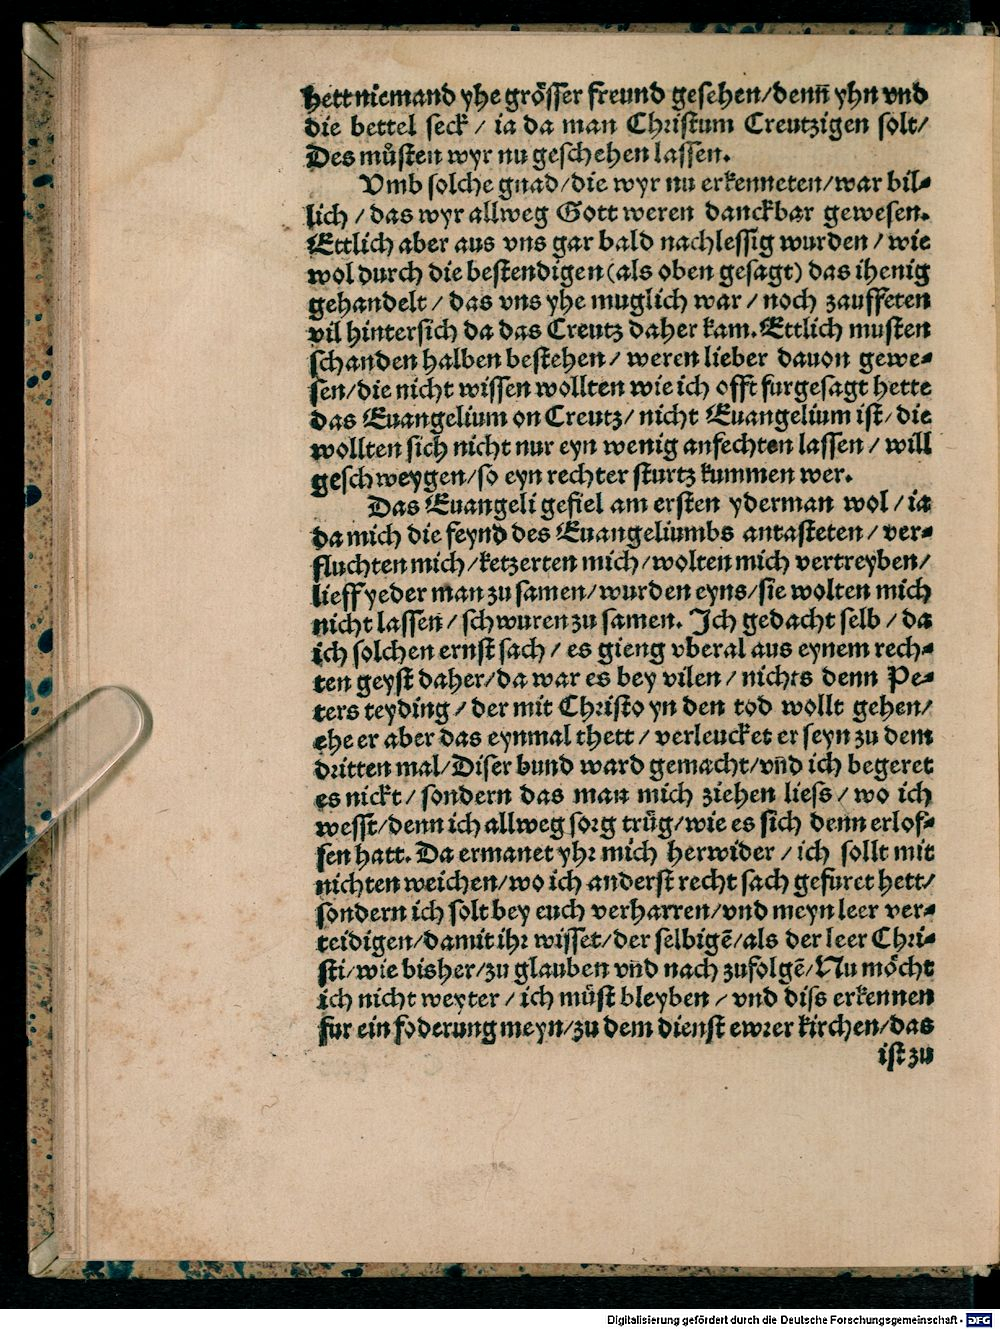 hett niemand yhe grösser freund gesehen/denn̄ yhn vnd
die bettel seck / ia da man Christum Creutzigen solt/
Des můsten wyr nu geschehen lassen.
Vmb solche gnad/die wyr nu erkenneten/war bil⸗
lich / das wyr allweg Gott weren danckbar gewesen.
Ettlich aber aus vns gar bald nachlessig wurden / wie
wol durch die bestendigen (als oben gesagt) das ihenig
gehandelt / das vns yhe muglich war / noch zauffeten
vil hintersich da das Creutz daher kam. Ettlich musten
schanden halben bestehen / weren lieber dauon gewe⸗
sen/die nicht wissen wollten wie ich offt furgesagt hette
das Euangelium on Creutz/ nicht Euangelium ist/ die
wollten sich nicht nur eyn wenig anfechten lassen / will
geschweygen/so eyn rechter sturtz kummen wer.
Das Euangeli gefiel am ersten yderman wol / ia
da mich die feynd des Euangeliumbs antasteten / ver⸗
fluchten mich/ketzerten mich/wolten mich vertreyben/
lieff yeder man zu samen/wurden eyns/sie wolten mich
nicht lassen/schwuren zu samen. Ich gedacht selb / da
ich solchen ernst sach / es gieng vberal aus eynem rech⸗
ten geyst daher/da war es bey vilen / nichts denn Pe⸗
ters teyding / der mit Christo yn den tod wollt gehen/
ehe er aber das eynmal thett / verleucket er seyn zu dem
dritten mal/Diser bund ward gemacht/vn̄d ich begeret
es nickt / sondern das man mich ziehen liess / wo ich
wesst/denn ich allweg sorg trůg/wie es sich denn erlof⸗
fen hatt. Da ermanet yhr mich herwider / ich sollt mit
nichten weichen/wo ich anderst recht sach gefuret hett/
sondern ich solt bey euch verharren/vnd meyn leer ver⸗
teidigen/damit ihr wisset/der selbigē/als der leer Chri⸗
sti/wie bisher/zu glauben vnd nach zufolgē/Nu möcht
ich nicht weyter / ich můst bleyben / vnd diss erkennen
fur ein foderung meyn/zu dem dienst ewrer kirchen/das
ist zu
Digitalisierung gefördert durch die Deutsche Forschungsgemeinschaft - DFG